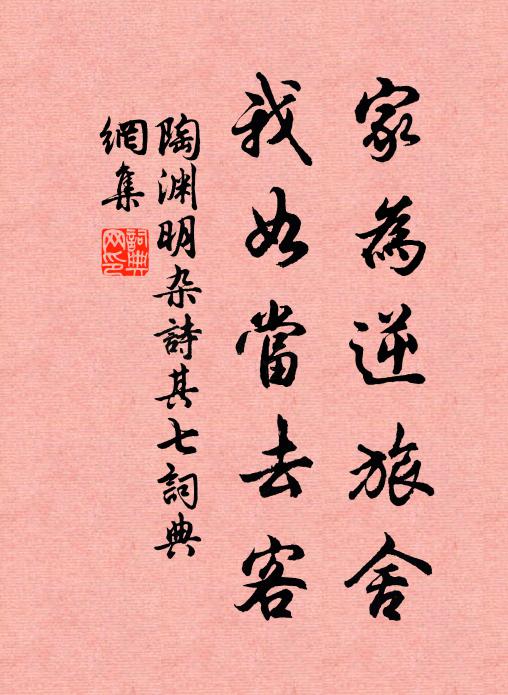 家為逆旅舍
我如當去客
陶渊明杂詩其七詞典
網集
詞典
网印